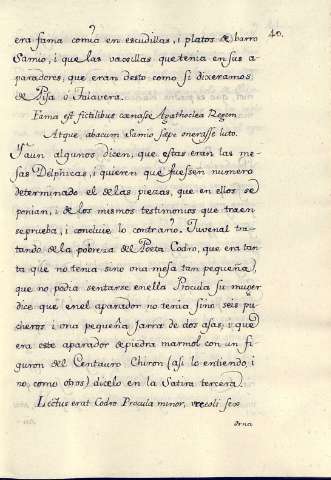 40.
era fama comia en escudillas, i platos de barro
Samio, i que las vaxillas que tenia en sus a
paradores, que eran desto como si dixeramos
de Pisa ò Talavera.
Fama est fictilibus cœnasse Agathoclea Regem
Atque, abacum Samio sæpe onerasse luto.
Y aun algunos dicen, que estas eran las me-
sas Delphicas, i quieren que fuessen numero
determinado el de las piezas, que en ellos se
ponian, i de los mismos testimonios que traen
se prueba, i concluie lo contrario. Juvenal tra-
tando de la pobreza del Poeta Codro, que era tan
ta que no tenia sino una mesa tan pequeña,
que no podia sentarse en ella Procula su muger
dice que en el aparador no tenia sino seis pu-
cheros i una pequeña Jarra de dos asas, i que
era este aparador de piedra marmol con un fi
guron del Centauro Chiron (asi lo entiendo, i
no, como otros) dicelo en la Satira tercera.
Lectus erat Codro Procula minor, vrceoli sex
orna